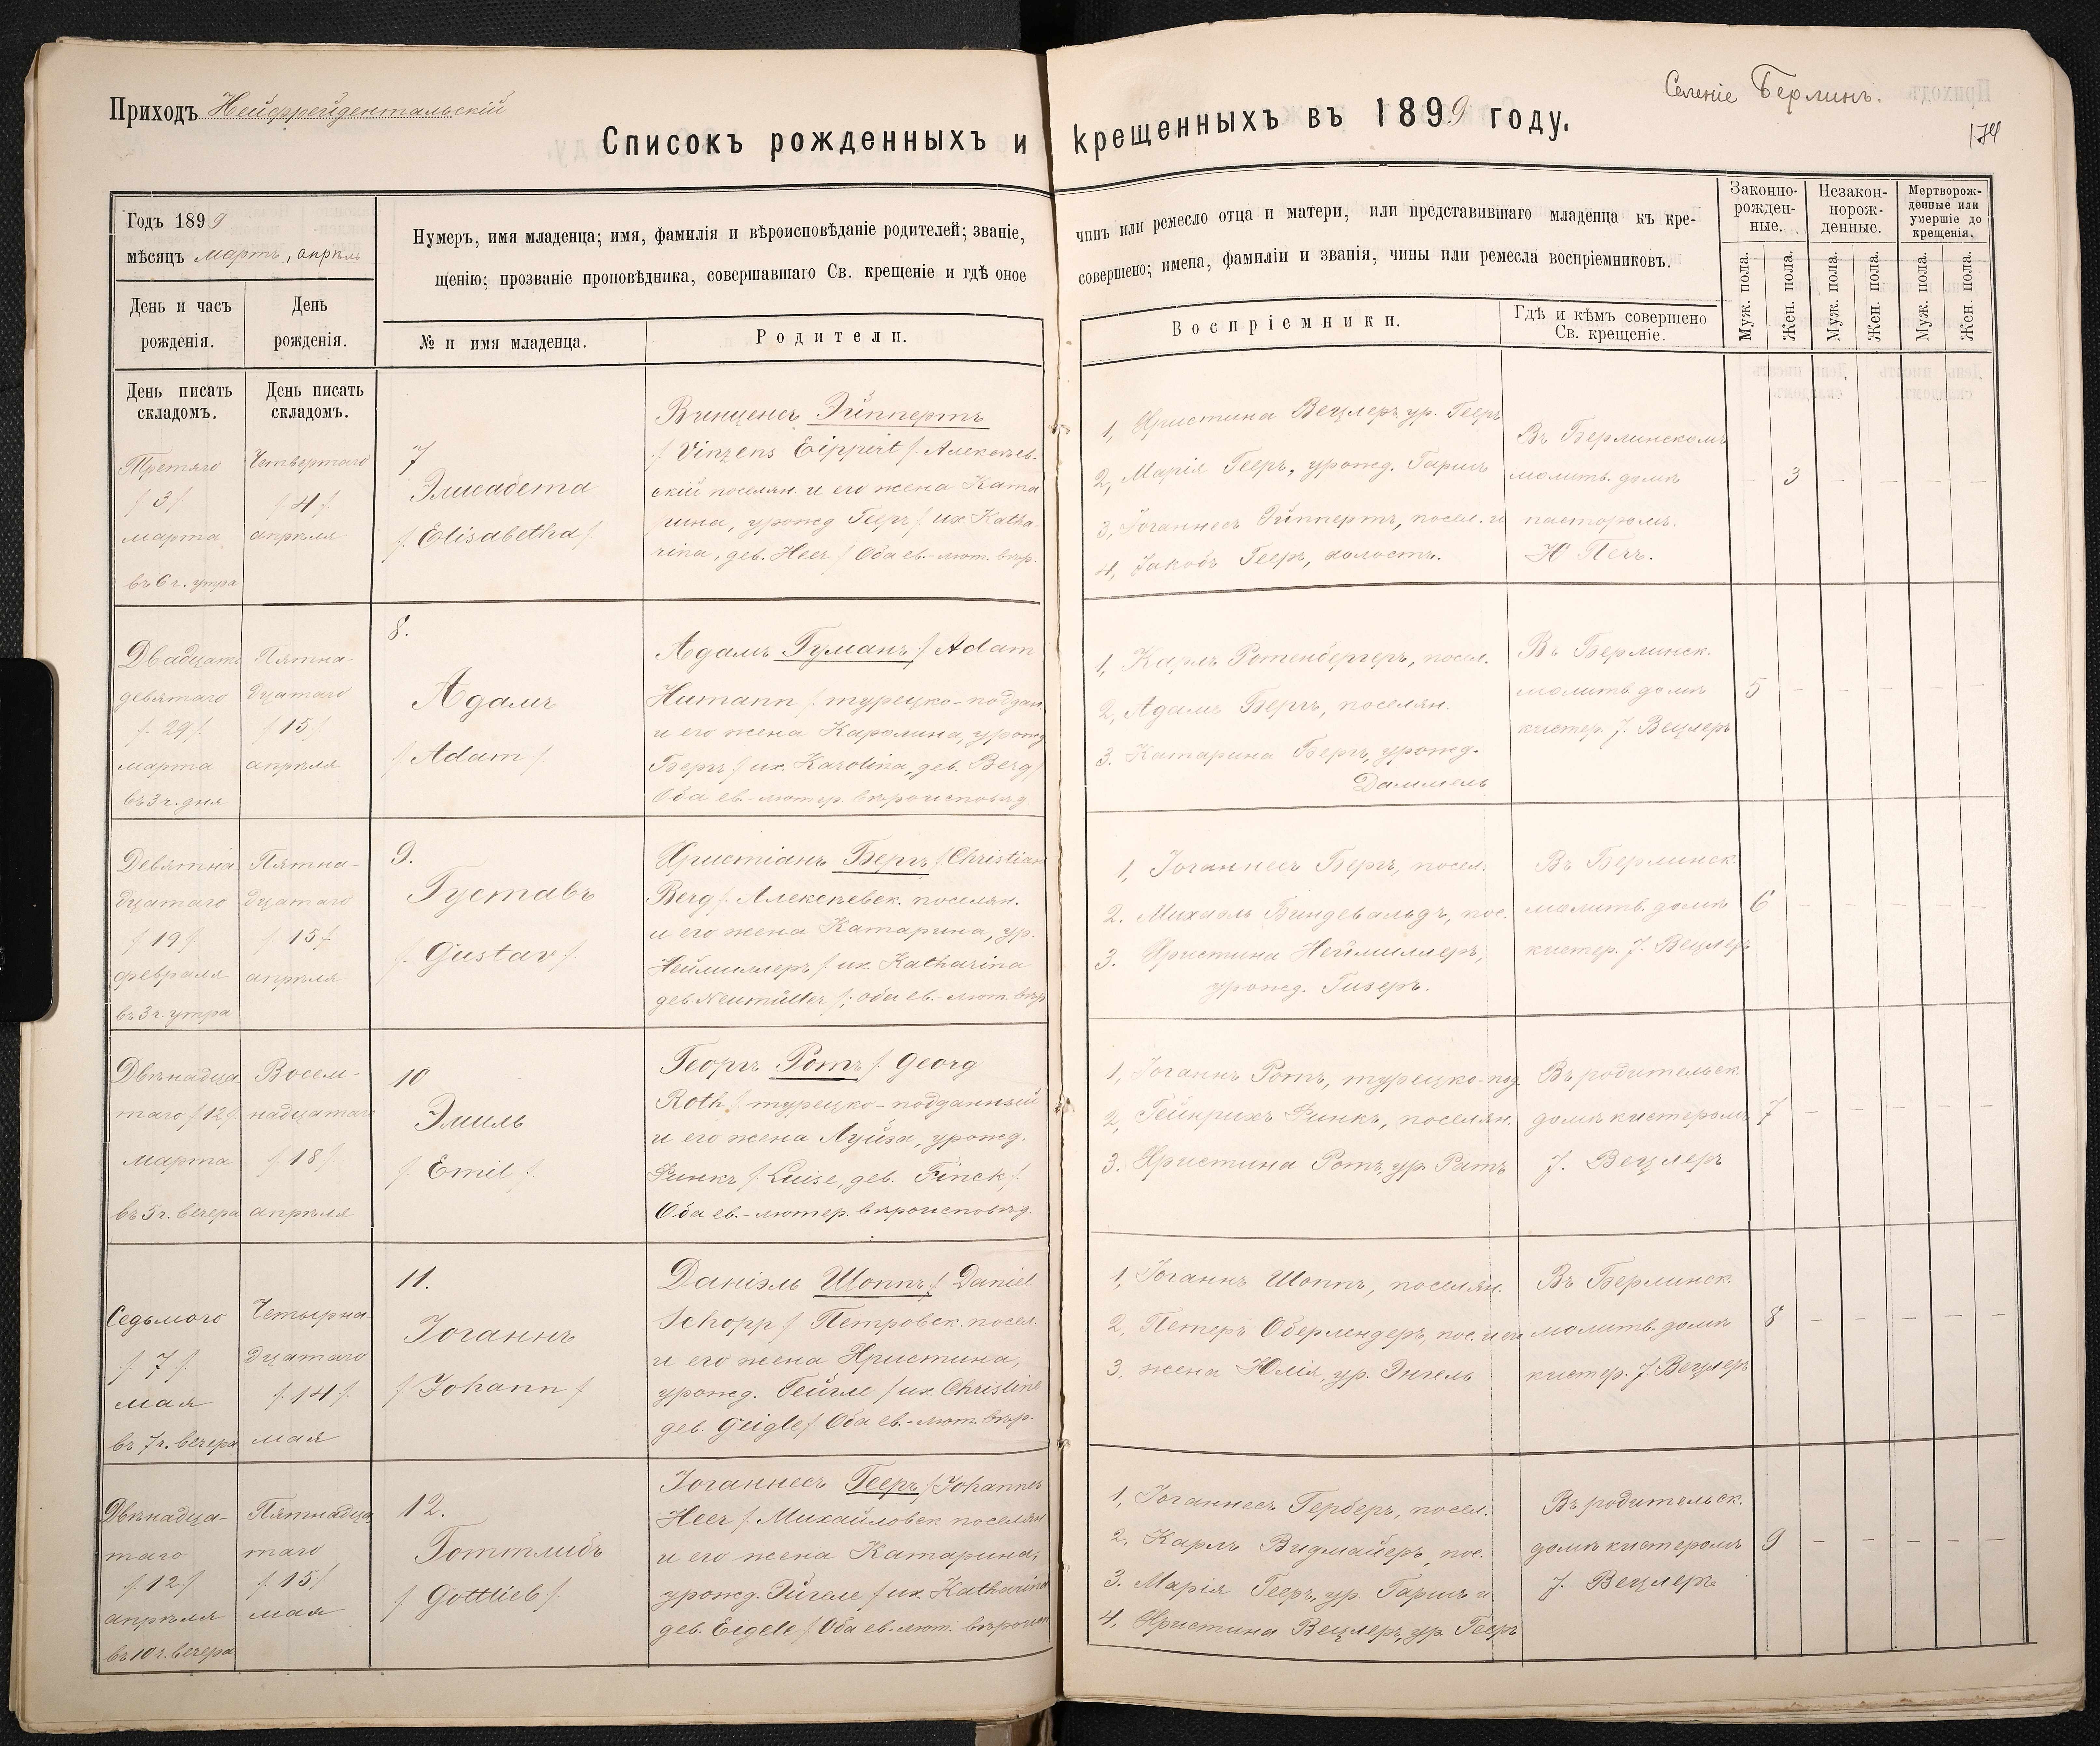 Приходъ Нейфрейдентальскій
Селеніе Берлинъ.
174
Списокъ рожденныхъ и крещенныхъ въ 1899 году.
Годъ 1899
мѣсяцъ мартъ, апрѣль
День и часъ рожденія.
День рожденія.
Нумеръ, имя младенца; имя, фамилія и вѣроисповѣданіе родителей; званіе, чинъ или ремесло отца и матери, или представившаго младенца къ кре-
щенію; прозваніе проповѣдника, совершавшаго Св. крещеніе и гдѣ оное совершено; имена, фамиліи и званія, чины или ремесла воспріемниковъ.
№ и имя младенца.
Родители.
Воспріемники.
Гдѣ и кѣмъ совершено
Св. крещеніе.
Законно-
рожден-
ные.
Незакон-
норож-
денные.
Мертворож-
денные или
умершіе до
крещенія.
Муж. пола.
Жен. пола.
Муж. пола.
Жен. пола.
Муж. пола.
Жен. пола.
День писать
складомъ.
День писать
складомъ.
Третяго
/ 3 /
марта
въ 6 ч. утра
Четвертаго
/ 4 /
апрѣля
7
Элисабета
/ Elisabetha /
Винценсъ Эйппертъ
/ Vinzens Eippert / Алексѣев-
скій поселян. и его жена Ката
рина, урожд Гееръ / их. Katha-
rina, geb. Heer / Оба ев.-лют. вѣр.
1, Христина Вецлеръ, ур. Гееръ
2, Марія Гееръ, урожд. Гаришъ
3, Іоганнесъ Эйппертъ, посел. и
4, Іакобъ Гееръ, холостъ.
Въ Берлинскомъ
молитв. домѣ
пасторомъ.
Н Печъ.
– 3 – – – –
Двадцать
девятаго
/ 29 /
марта
въ 3 ч. дня
Пятна-
дцатаго
/ 15 /
апрѣля
8.
Адамъ
/ Adam /
Адамъ Гуманъ / Adam
Humann / турецко-поддан
и его жена Каролина, урожд
Бергъ / их. Karolina, geb. Berg /
Оба ев.-лютер. вѣроисповѣд
1, Карлъ Ротенбергеръ, посел.
2, Адамъ Бергъ, поселян.
3. Катарина Бергъ, урожд.
Даммель
Въ Берлинск.
молитв. домѣ
кистер. J. Вецлеръ
5 – – – – –
Девятна
дцатаго
/ 19 /
февраля
въ 3 ч. утра
Пятна-
дцатаго
/ 15 /
апрѣля
9.
Густавъ
/ Gustav /
Христіанъ Бергъ / Christian
Berg / Алексѣевск. поселян.
и его жена Катарина, ур.
Неймиллеръ / их. Katharina
geb Neumüller /; оба ев.-лют. вѣр
1, Іоганнесъ Бергъ, посел.
2. Михаэль Биндевальдъ, пос.
3. Христина Неймиллеръ,
урожд. Гизеръ.
Въ Берлинск.
молитв. домѣ
кистер. J. Вецлеръ
6 – – – – –
Двѣнадца
таго / 12 /
марта
въ 5 ч. вечера
Восем-
надцатаго
/ 18 /
апрѣля
10
Эмиль
/ Emil /
Георгъ Ротъ / Georg
Roth / турецко-подданный
и его жена Луиза, урожд.
Финкъ / Luise, geb. Finck /
Оба ев.-лютер. вѣроисповѣд
1, Іоганнъ Ротъ, турецко-под
2, Гейнрихъ Финкъ, поселян.
3. Христина Ротъ, ур. Ратъ
Въ родительск.
домѣ кистеромъ
J. Вецлеръ
7 – – – – –
Седьмого
/ 7 /
мая
въ 7 ч. вечера
Четырна-
дцатаго
/ 14 /
мая
11.
Іоганнъ
/ Johann /
Даніэль Шоппъ / Daniel
Schopp / Петровск. посел.
и его жена Христина,
урожд. Гейгле / их. Christine
geb. Geigle / Оба ев.-лют. вѣр.
1, Іоганнъ Шоппъ, поселян.
2, Петеръ Оберлендеръ, пос. и его
3, жена Юлія, ур. Энгель
Въ Берлинск.
молитв. домѣ
кистер. J. Вецлеръ
8 – – – – –
Двѣнадца-
таго
/ 12 /
апрѣля
въ 10 ч. вечера
Пятнадца
таго
/ 15 /
мая
12.
Готтлибъ
/ Gottlieb /
Іоганнесъ Гееръ / Johannes
Heer / Михайловск поселян
и его жена Катарина,
урожд. Эйгеле / их. Katharina
geb. Eigele / Оба ев-лют. вѣроисп
1, Іоганнесъ Герберъ, посел.
2, Карлъ Видмайеръ, пос.
3. Марія Гееръ, ур. Гаришъ и
4, Христина Вецлеръ, ур. Гееръ
Въ родительск.
домѣ кистеромъ
J. Вецлеръ
9 – – – – –